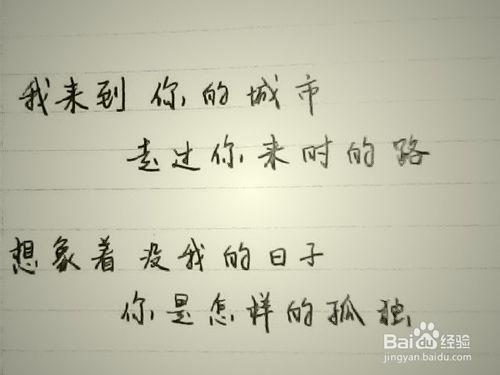 我来到 你的城市
走过你来时的路
想象着 没我的日子
你是怎样的孤独
Baidu经验
jingyan.baidu.com